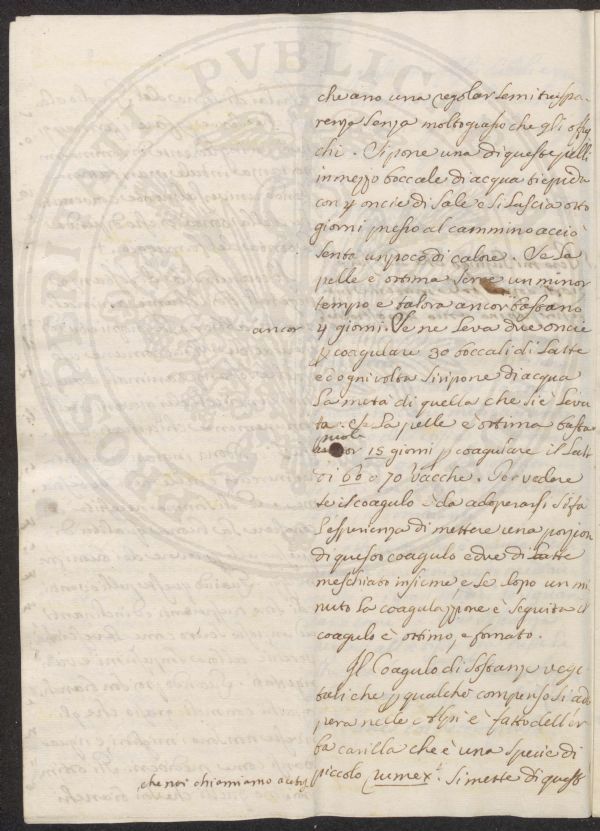 PVBLIC
PROSPERITATI
che ano una regolar semitraspa
renza senza molto grasso che gli offus
chi. Si pone una di queste pelli
in mezzo boccale di acqua tiepida
con 4 oncie di sale e si lascia otto
giorni presso al cammino acciò
senta un poco di calore. Se la
pelle è ottima serve un minor
tempo e talora ancor bastano
4 giorni. Se ne leva due oncie
ancor
p coagulare 30 boccali di latte
ed ogni volta si ripone di acqua
la metà di quella che si è leva
ta. e se la pelle è ottima basta
puole
15 giorni p coagulare il latte
di 60 o 70 vacche. Per vedere
se il coagulo è da adoperarsi si fa
l'esperienza di mettere una porzion
di questo coagulo e due di latte
meschiato insieme, e se dopo un mi
nuto la coagulazione è seguita il
coagulo è ottimo, e fornato.
Il Coagulo di Sostanze vege
tali che p qualche compenso si ado
pera nelle Alpi è fatto dell'er
ba carilla che è una specie di
piccolo rumex. Si mette di quest
che noi chiamiamo